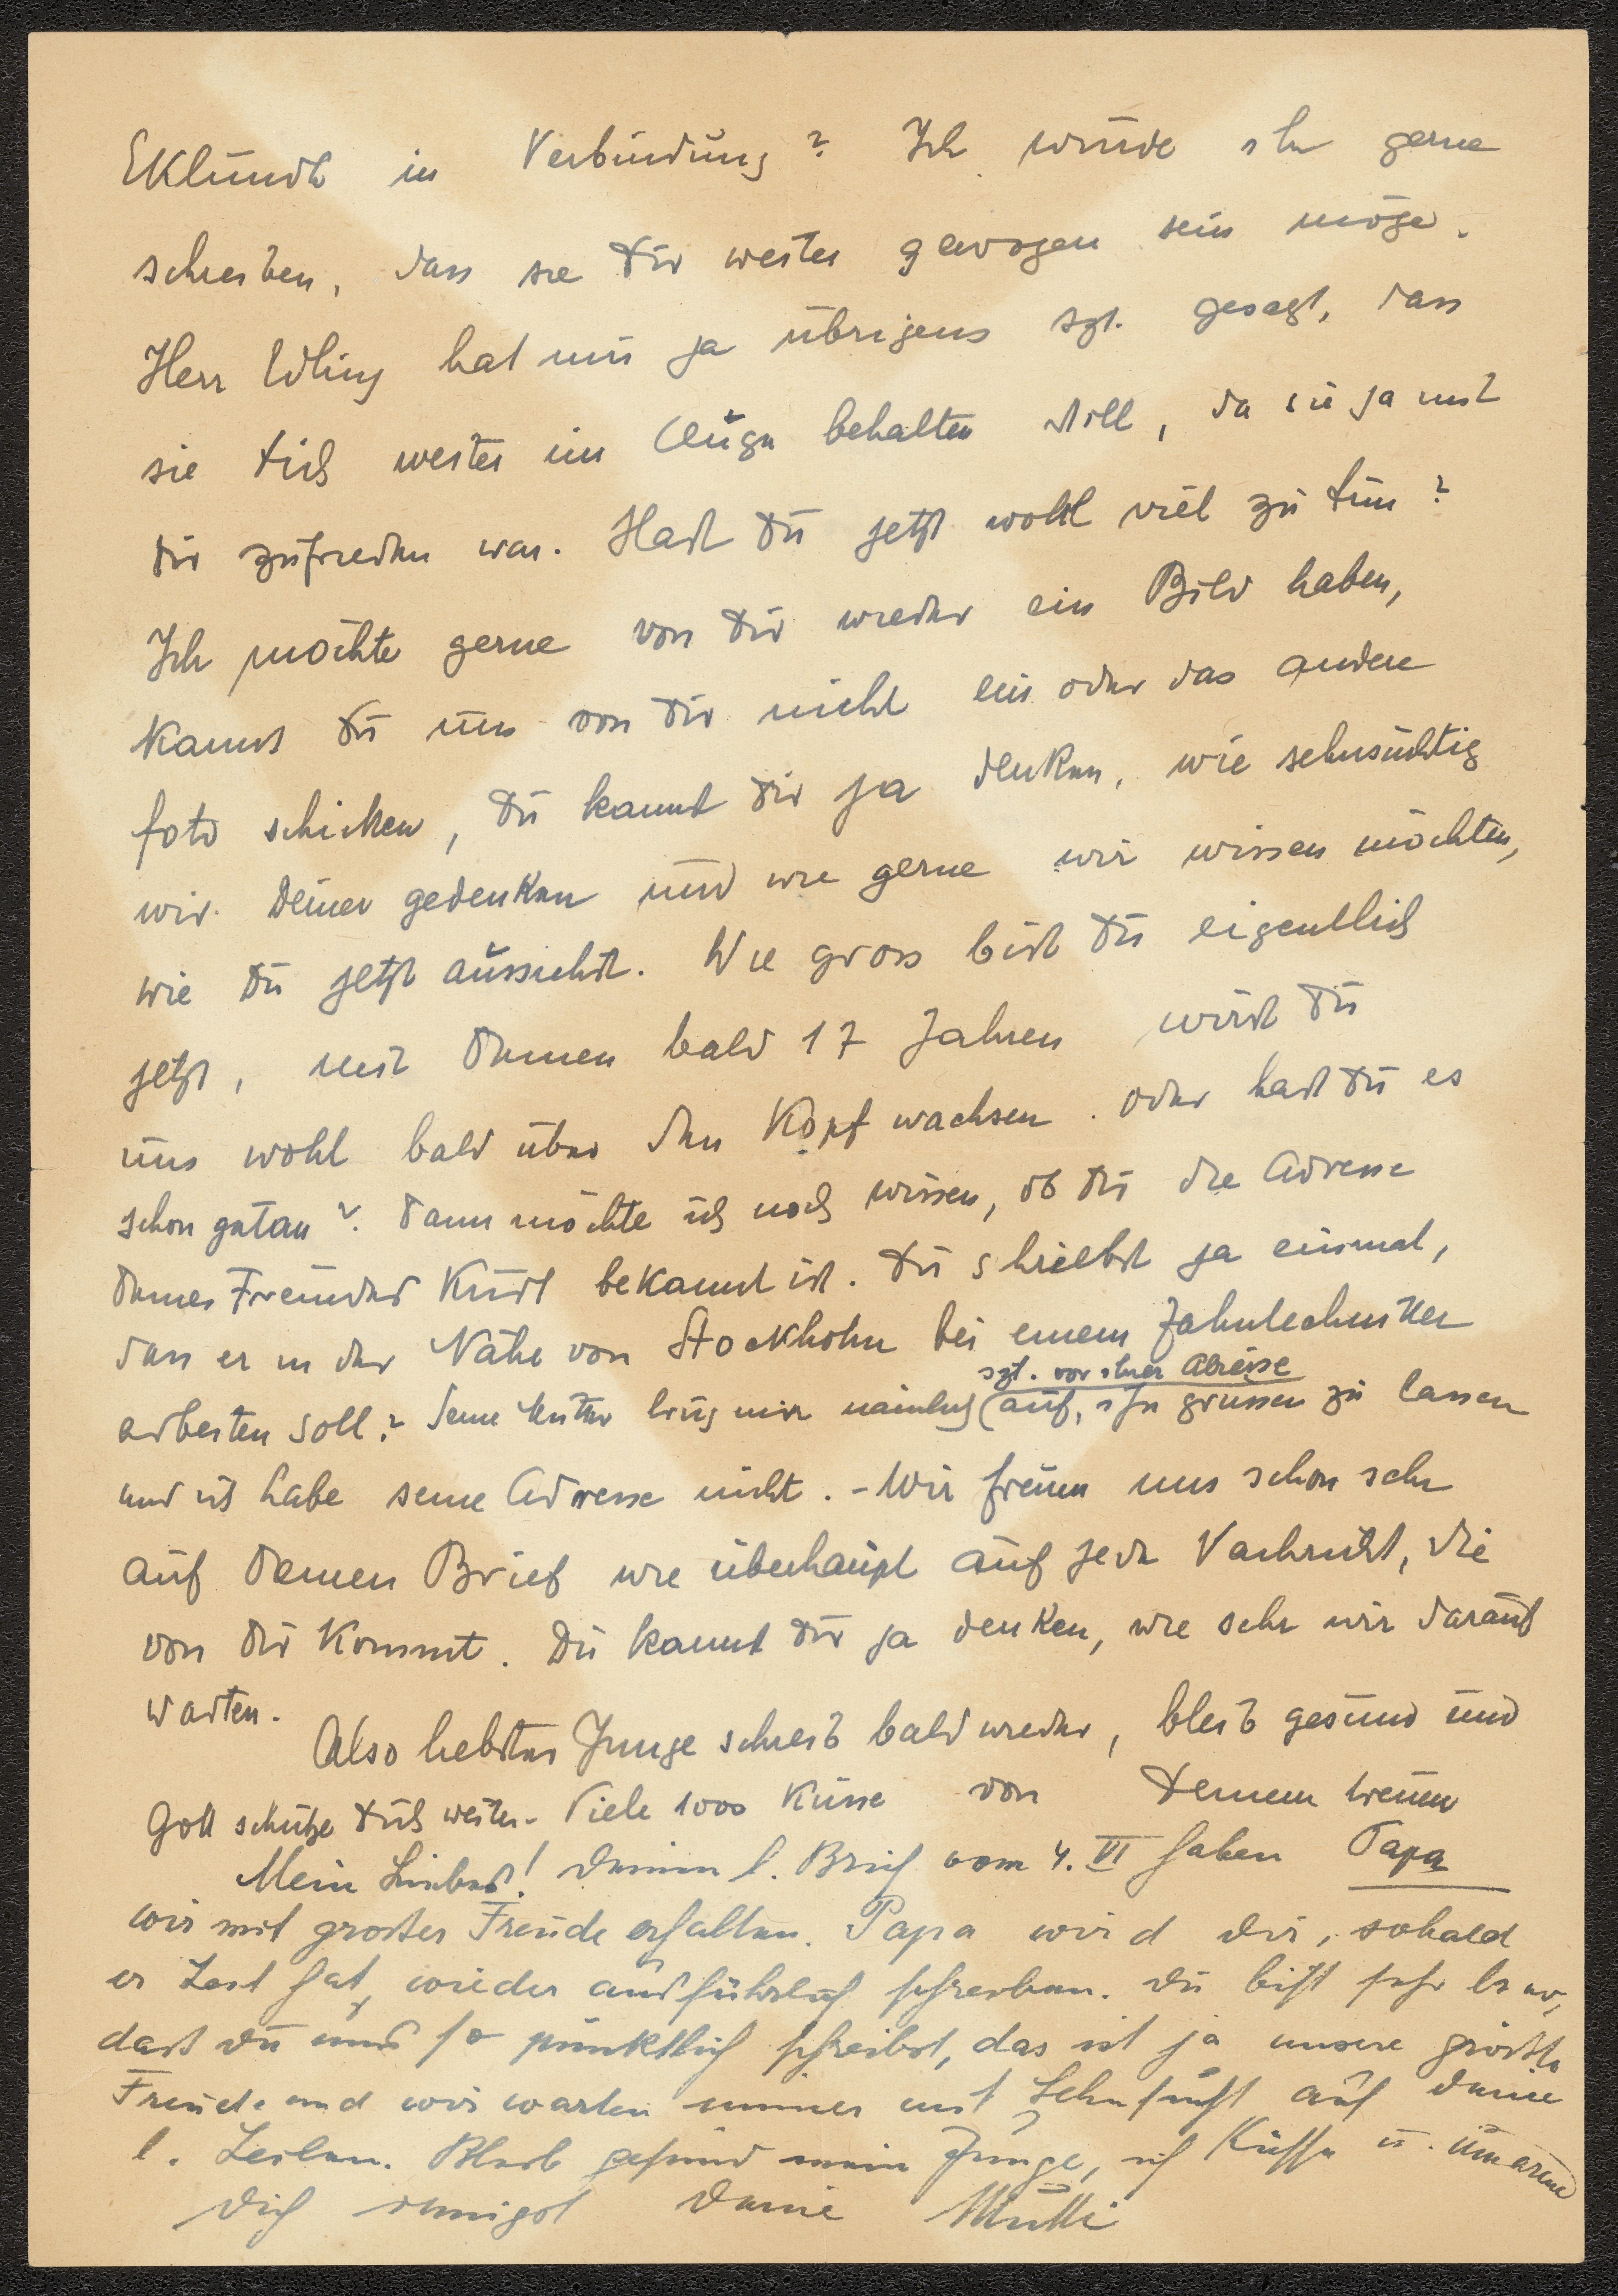 Eklundh in Verbindung? Ich würde ihr gerne
schreiben, dass sie Dir weiter gewogen sein möge.
Herr hat mir ja übrigens szt. gesagt, dass
sie Dich weiter im Auge behalten will, da sie ja mit
Dir zufrieden war. Hast Du jetzt wohl viel zu tun?
Ich möchte gerne von Dir wieder ein Bild haben,
kannst Du uns von Dir nicht ein oder das andere
foto schicken, Du kannst Dir ja denken, wie sehnsüchtig
wir Deiner gedenken und wie gerne wir wissen möchten,
wie Du jetzt aussiehst. Wie gross bist Du eigentlich
jetzt, mit Deinen bald 17 Jahren wirst Du
uns wohl bald über den Kopf wachsen. Oder hast Du es
schon getan? Dann möchte ich noch wissen, ob Dir die Adresse
Deines Freundes Kurt bekannt ist. Du schriebst ja einmal,
dass er in der Nähe von Stockholm bei einem Zahntechniker
arbeiten soll? Seine Mutter trug mir nämlich (szt. vor ihrer Abreise
auf, ihn grüssen zu lassen
und ich habe seine Adresse nicht. - Wir freuen uns schon sehr
auf Deinen Brief wie überhaupt auf jede Nachricht, die
von Dir kommt. Du kannst Dir ja denken, wie sehr wir darauf
warten.
Also liebster Junge schreib bald wieder, bleib gesund und
Gott schütze Dich weiter. Viele 1000 Küsse von Deinem treuen
Papa
Mein Liebes! Deinen l. Brief vom 4. VI haben
wir mit grosser Freude erhalten. Papa wird Dir, sobald
er Zeit hat, wieder ausführlich schreiben. Du bist sehr brav,
dass Du uns so pünktlich schreibst, das ist ja unsere grösste
Freude und wir warten immer mit Sehnsucht auf Deine
l. Zeilen. Bleib gesund mein Junge, ich küsse u. umarme
Dich innigst Deine Mutti